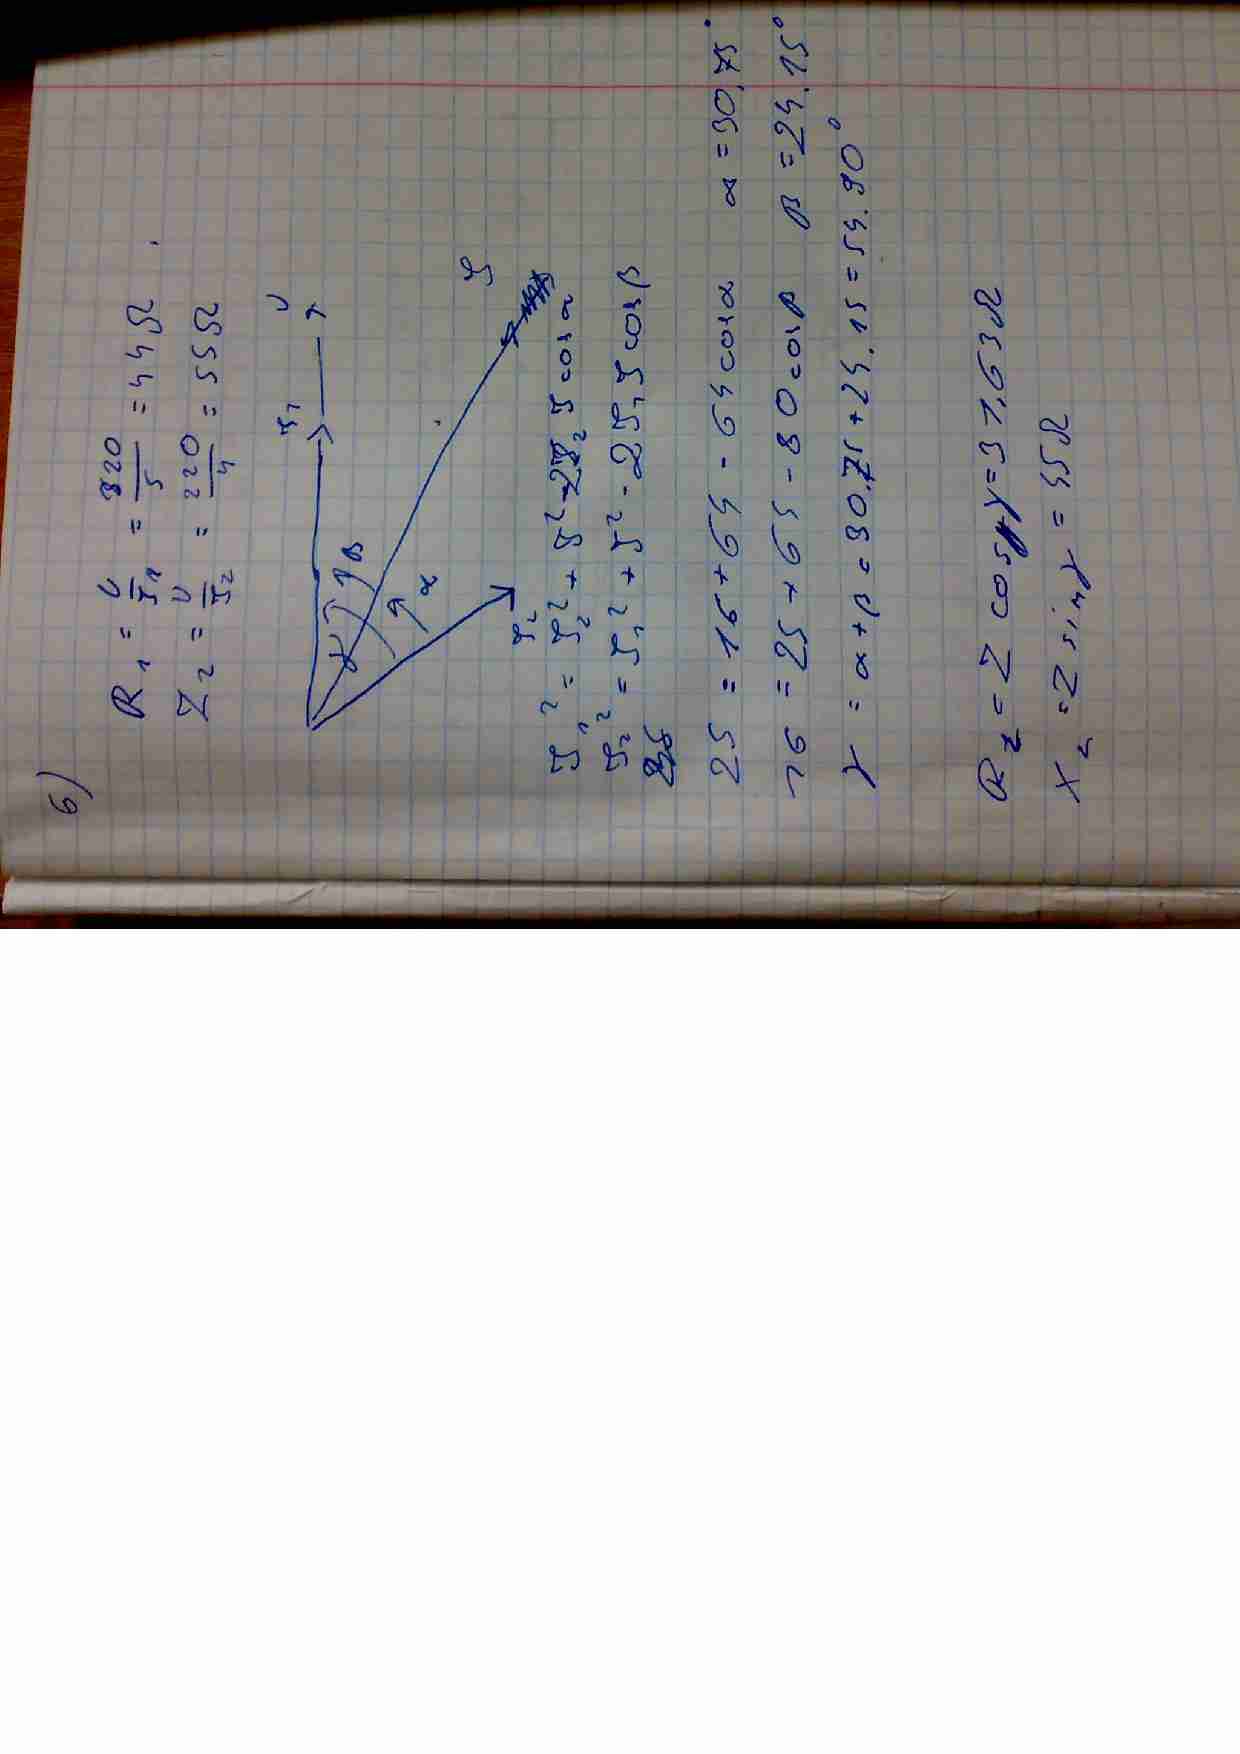 6)
R₁ = U/I₁ = 220/5 = 44 Ω
Z₂ = U/I₂ = 220/4 = 55 Ω
I₁ U
γ β
α
I₂ I
I₁² = I₂² + I² - 2I₂ I cos α
I₂² = I₁² + I² - 2I₁ I cos β
25 = 16 + 64 - 64 cos α α = 30,75°
16 = 25 + 64 - 80 cos β β = 24.15°
γ = α + β = 30.75 + 24.15 = 54.90°
R₂ = Z cos γ = 31,63 Ω
X₂ = Z sin γ = 45 Ω